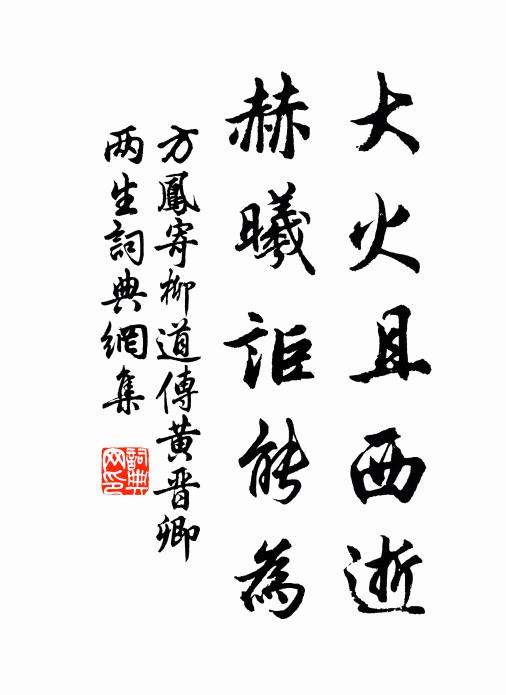 大火且西逝
赫曦詎能為
方鳳寄柳道傳黄晋卿
两生詞典網集
詞典网印